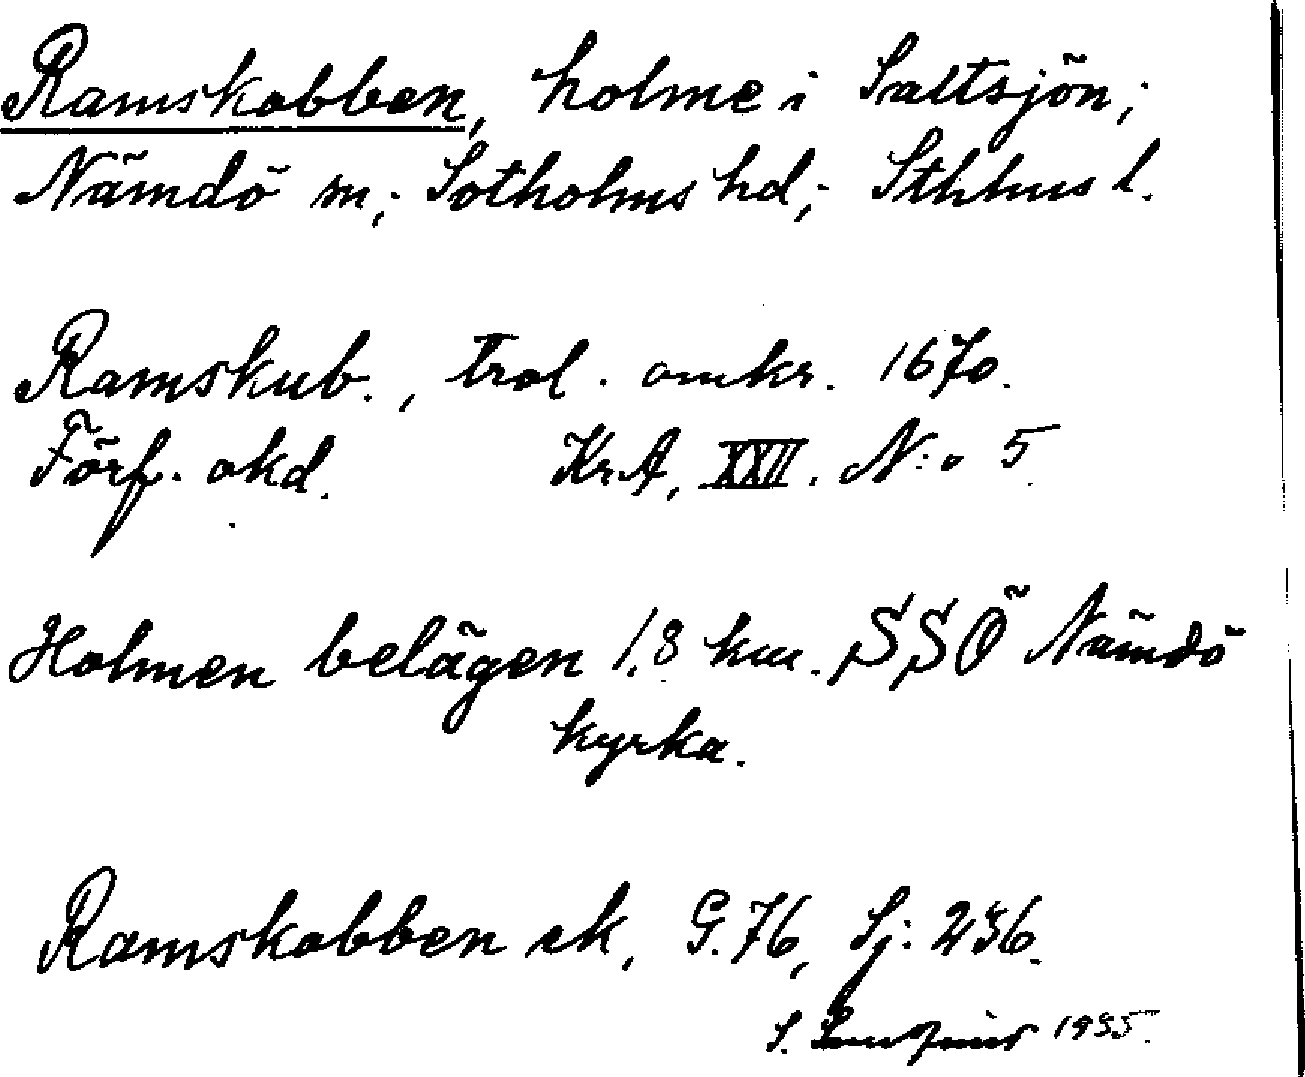 Ramskobben, holme i Saltsjön;
Nämdö m; Sotholms hd; Sthlms l.
Ramskub., trol. omkr. 1670.
Förf. okd. KrA, XXII. N:o 5
Holmen belägen 1,8 km. SSÖ Nämdö
kyrka.
Ramskobben ek, G.76, Sj: 236.
S. 1935.